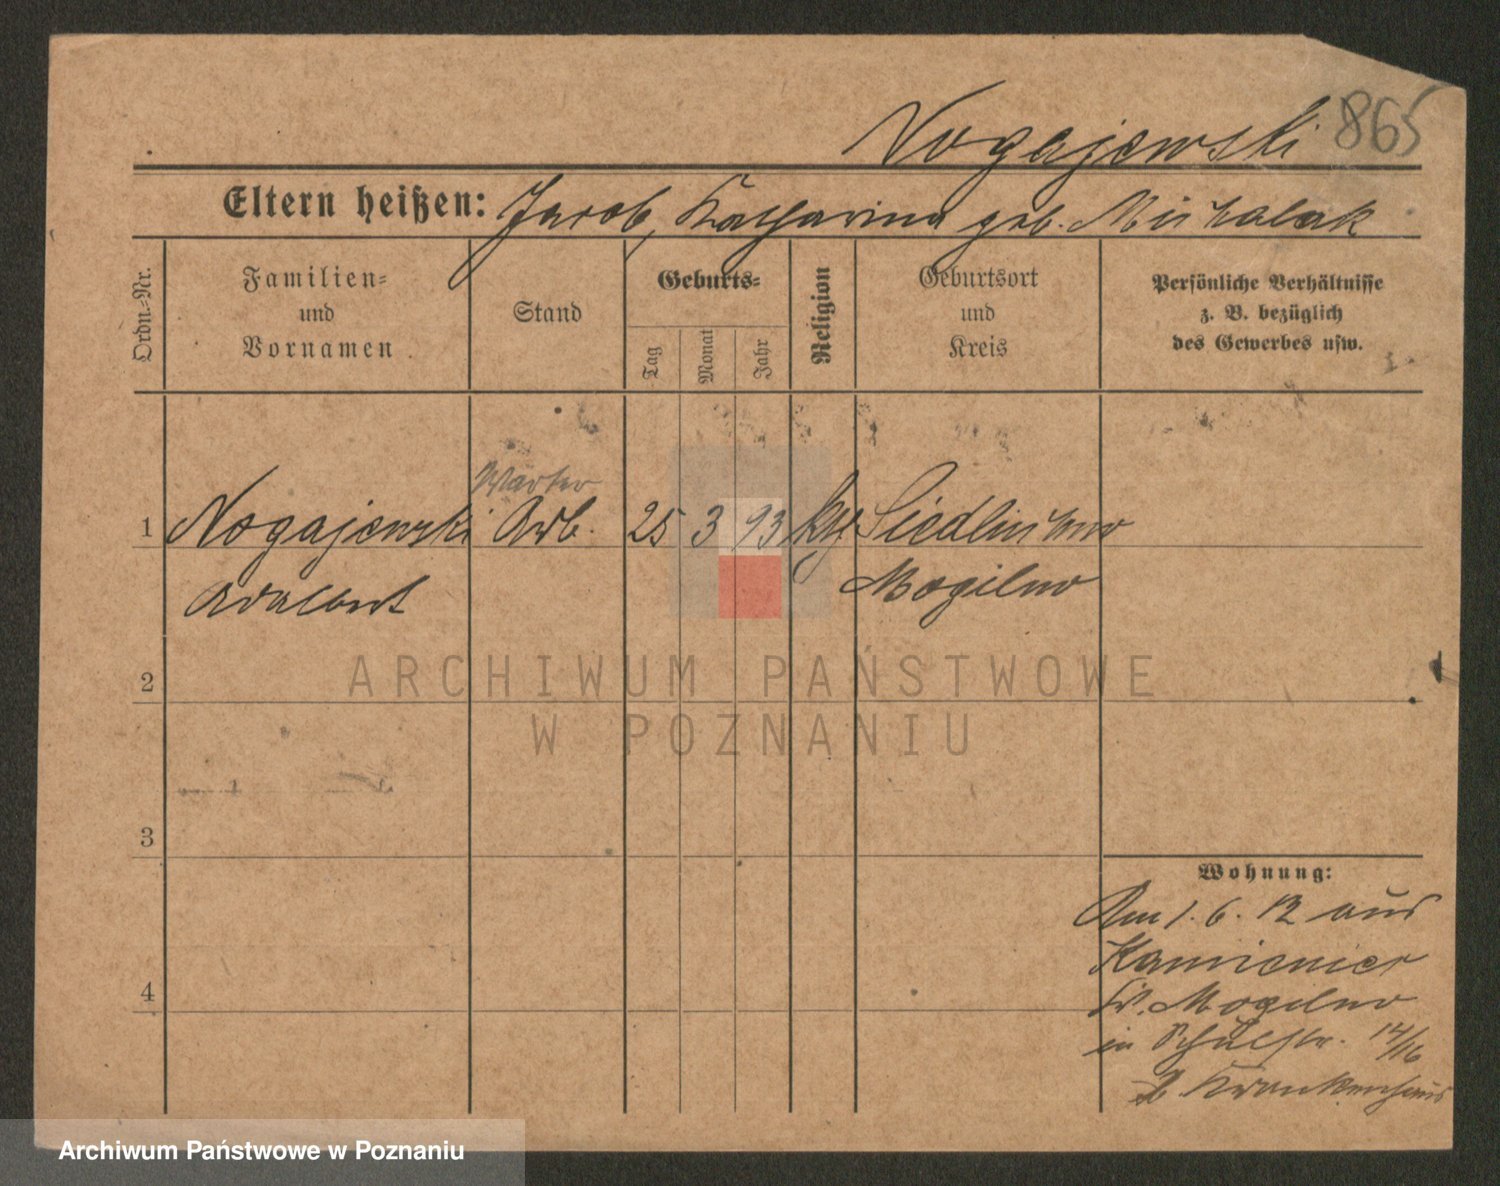 Nogajewski 865
Eltern heißen: Jacob, Katharina geb. Michalak
Ordn.=Nr.
Familien=
und
Vornamen
Stand
Geburts=
Tag
Monat
Jahr
Religion
Geburtsort
und
Kreis
Persönliche Verhältnisse
z. B. bezüglich
des Gewerbes usw.
1 Nogajewski Arb. 25 3 93 Siedluchno
Adalbert Mogilno
2
3
4
Wohnung:
Am 1. 6. 12 aus
Kamieniec
Kr. Mogilno
in Schulstr. 14/16
Krankenhaus
ARCHIWUM PAŃSTWOWE
W POZNANIU
Archiwum Państwowe w Poznaniu